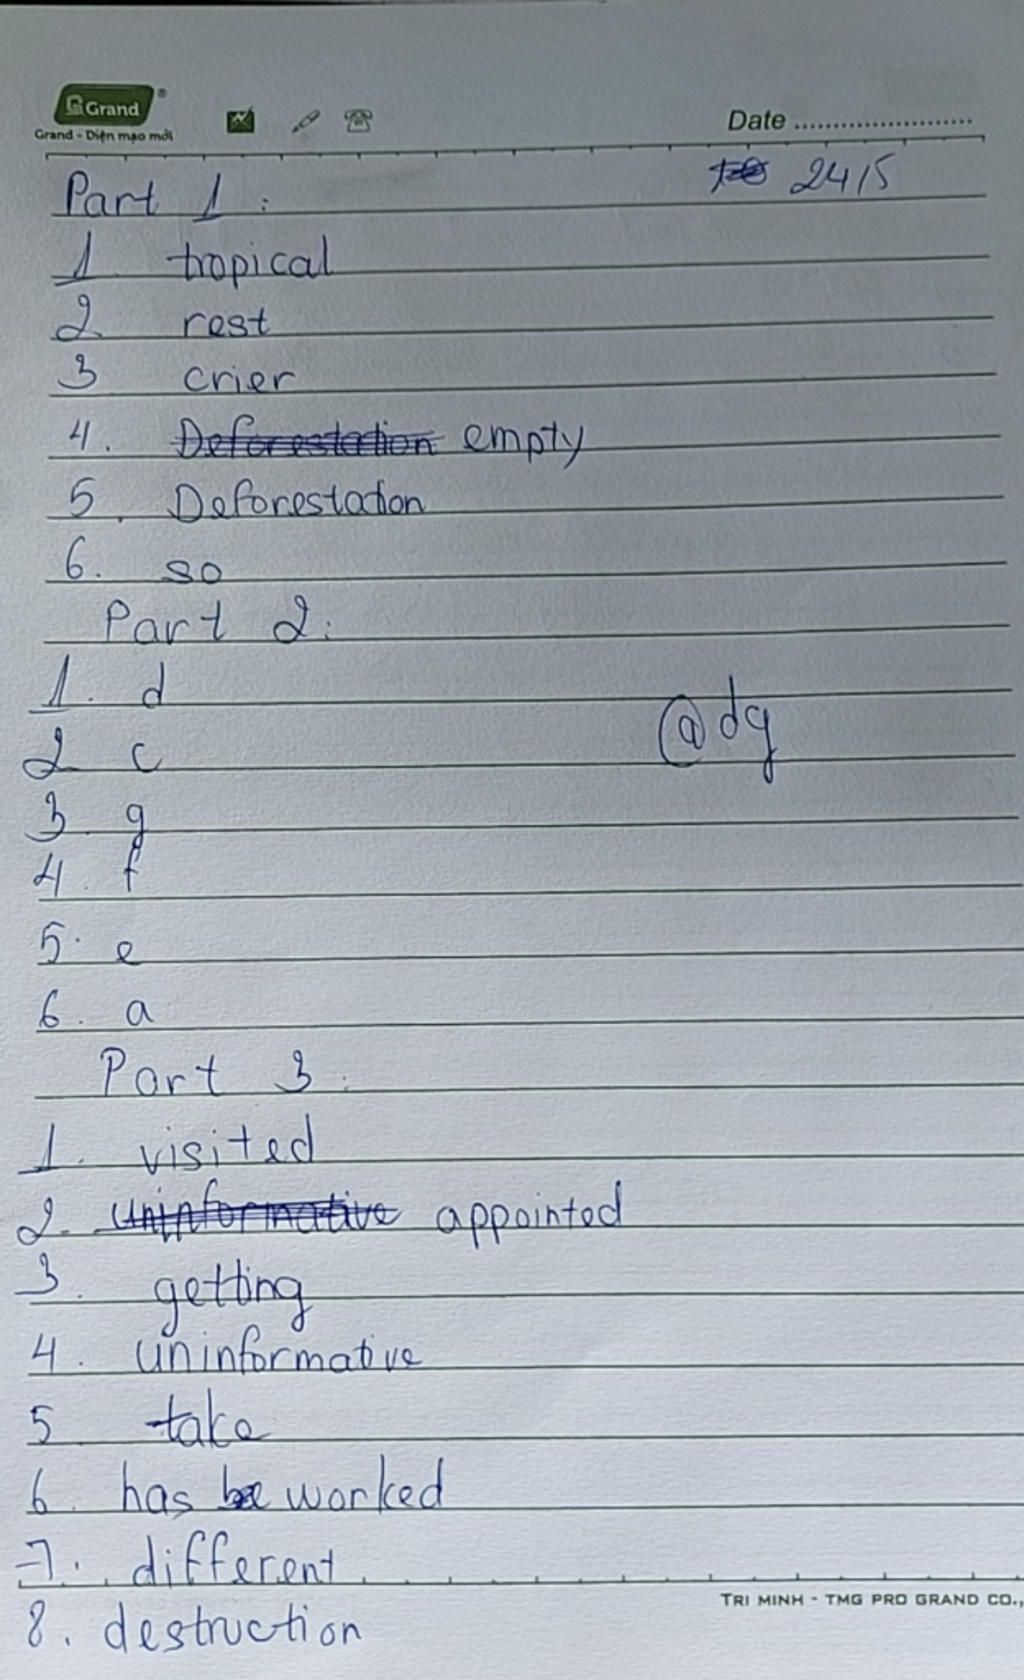 Grand
Grand - Diện mạo mới
Date
24/5
Part 1:
1 tropical
2 rest
3 crier
4. Deforestation empty
5. Deforestation
6. so
Part 2:
1. d
@dg
2 c
3 g
4. f
5. e
6. a
Part 3.
1. visited
2. Uninformative appointed
3. getting
4. uninformative
5 take
6. has be worked
7. different
8. destruction
TRI MINH - TMG PRO GRAND CO.,